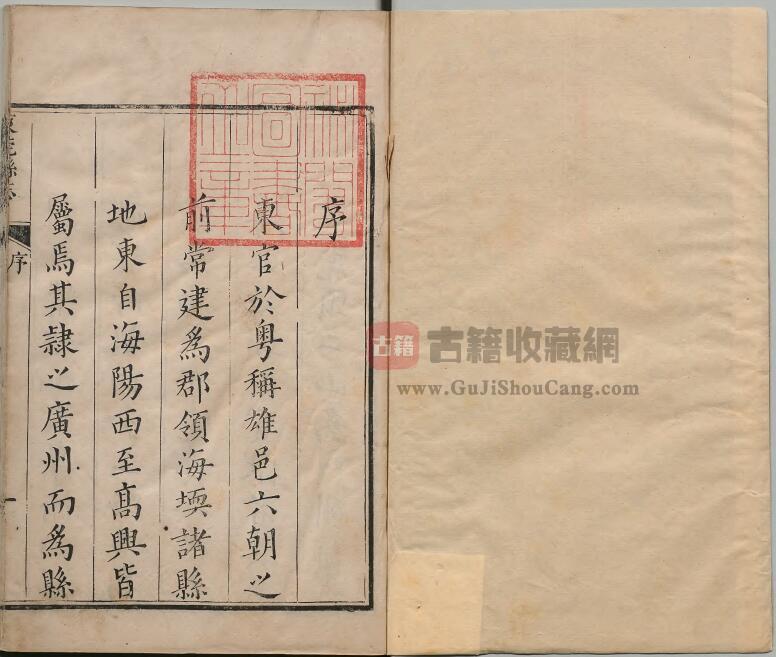 序
東官於粤稱雄邑六朝之
前常建爲郡領海堧諸縣
地東自海陽西至髙興皆
屬焉其隷之廣州而爲縣
序
一
古籍
古籍收藏網
www.GuJiShouCang.com